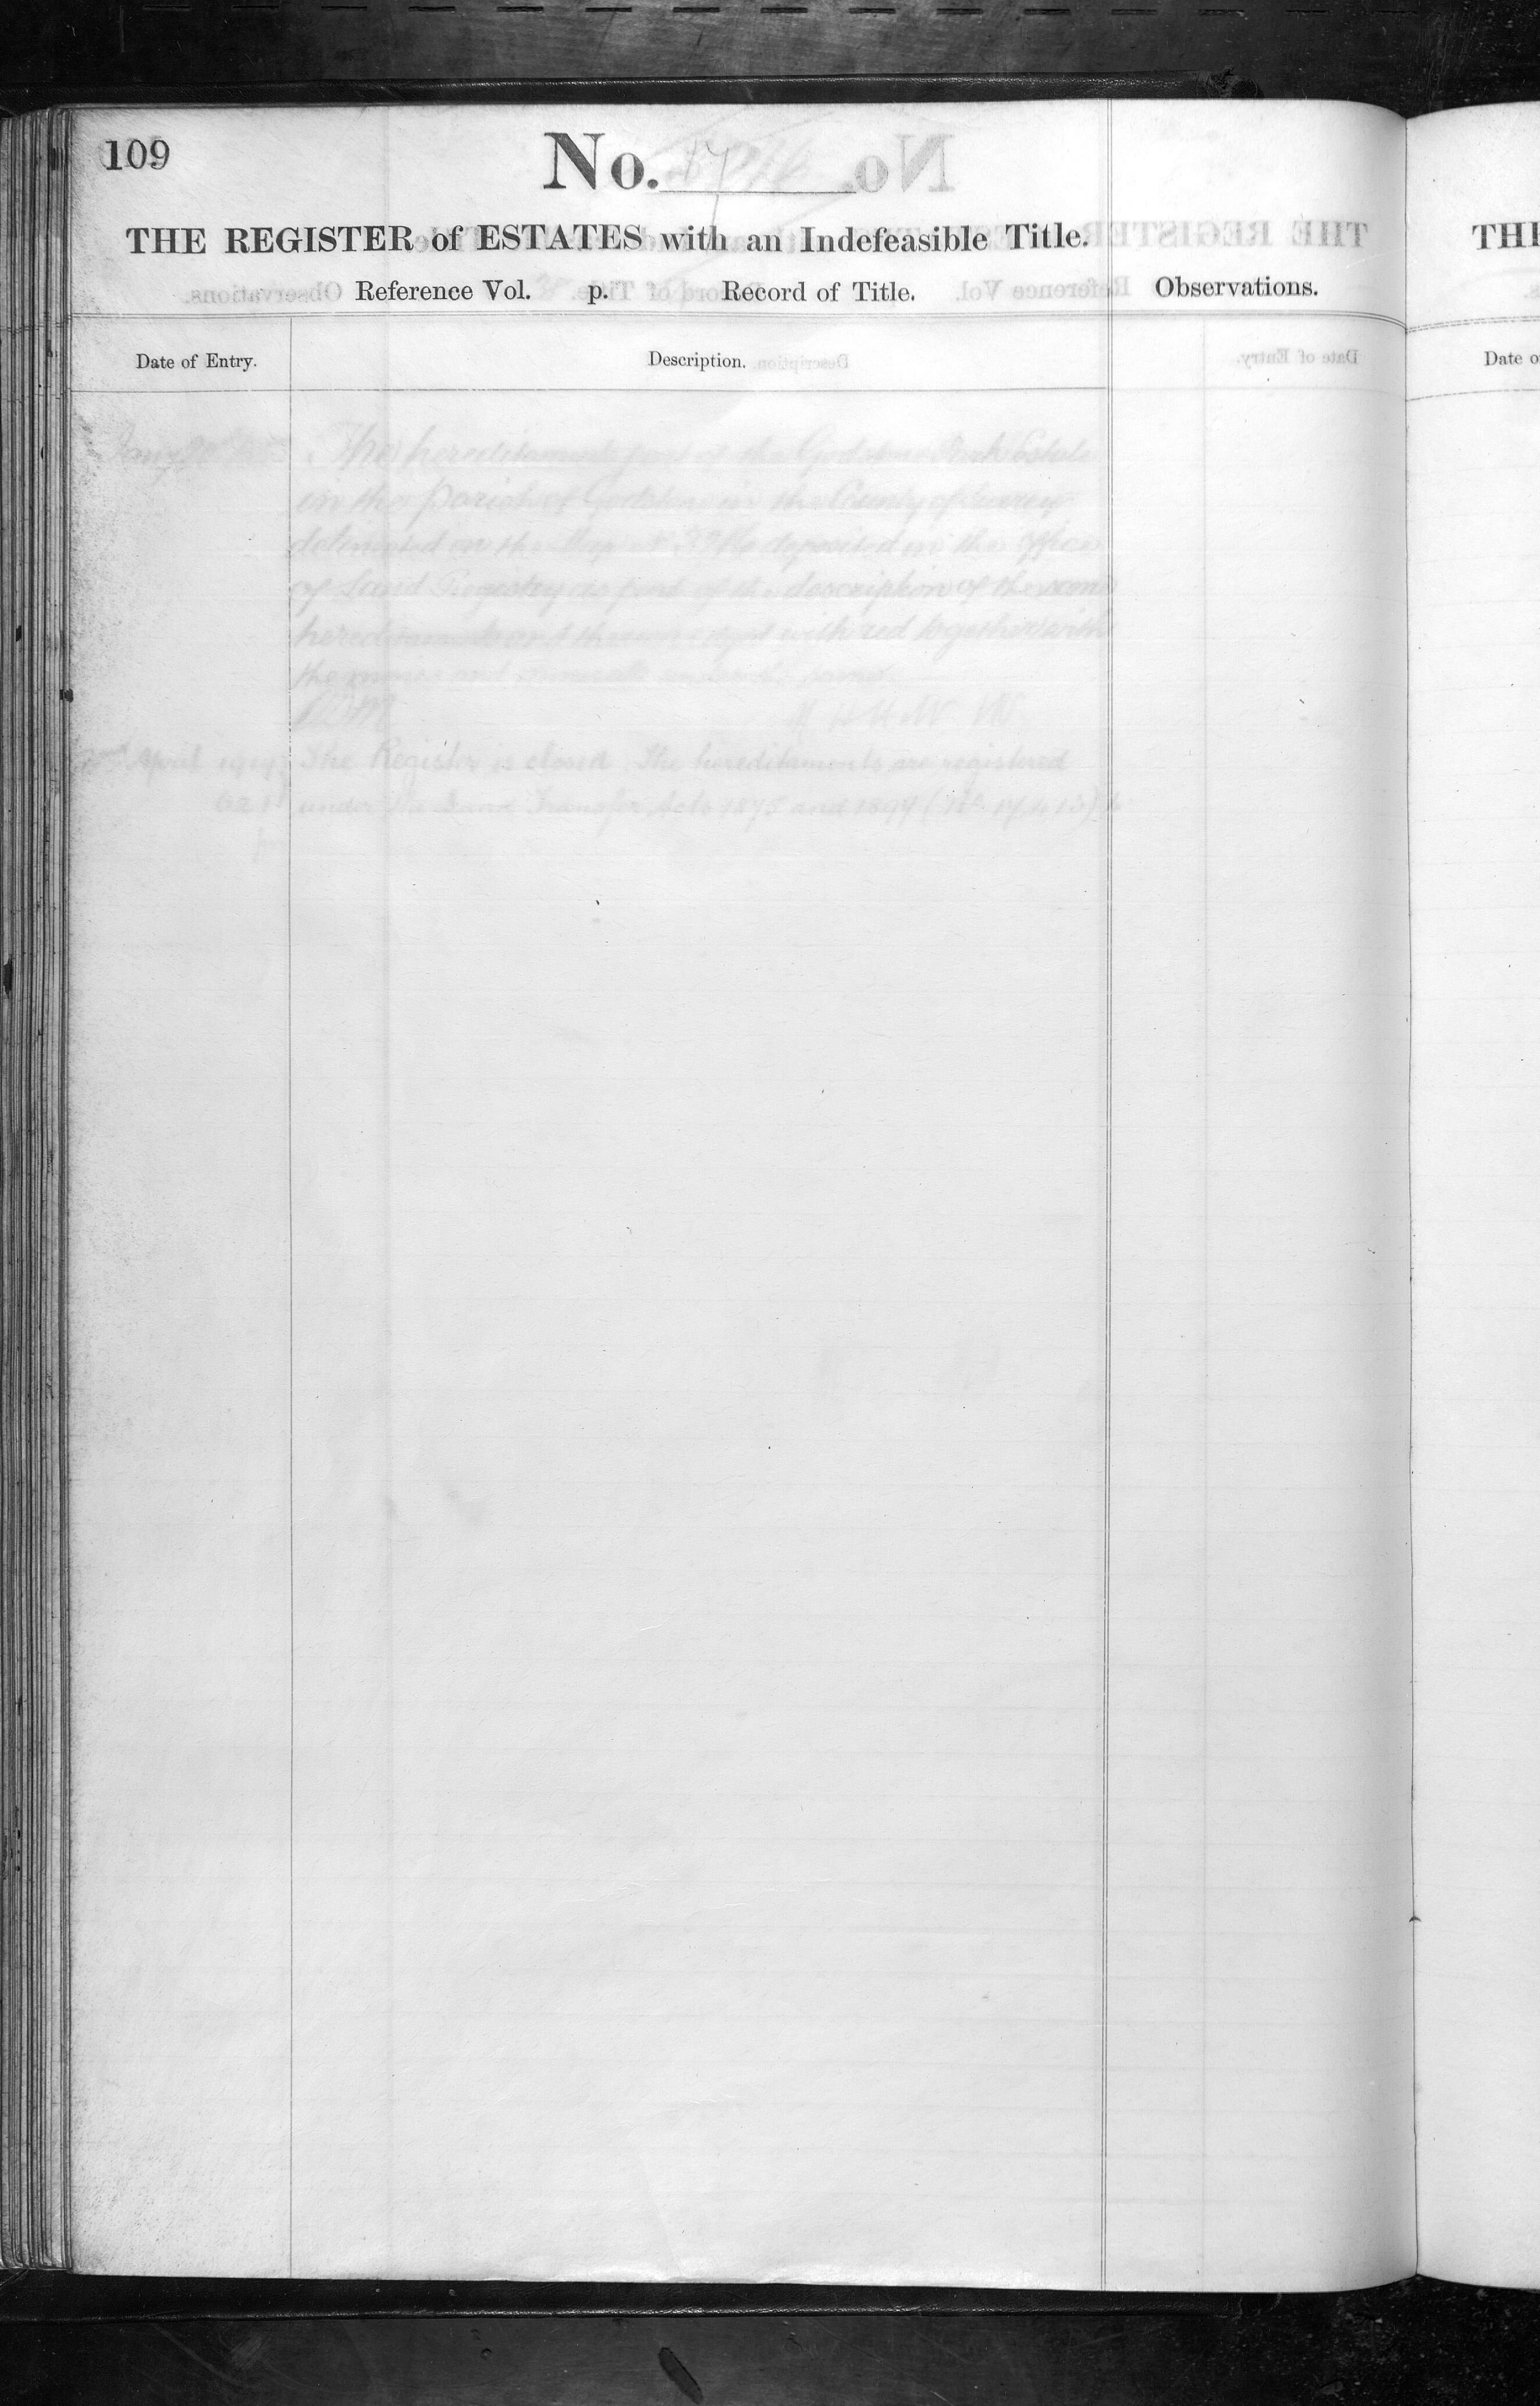 109
No.
THE REGISTER of ESTATES with an Indefeasible Title.
Reference Vol. p. Record of Title. Observations.
Date of Entry. Description.
The hereditaments part of the Godstone Park Estate
in the Parish of Godstone in the County of Surrey
delineated on the Map deposited in the Office
of Land Registry as part of the description of the same
hereditaments and thereon edged with red together with
the mines and minerals under the same
April 1919 The Register is closed. The hereditaments are registered
under the Land Transfer Acts 1875 and 1897
THE
Date o